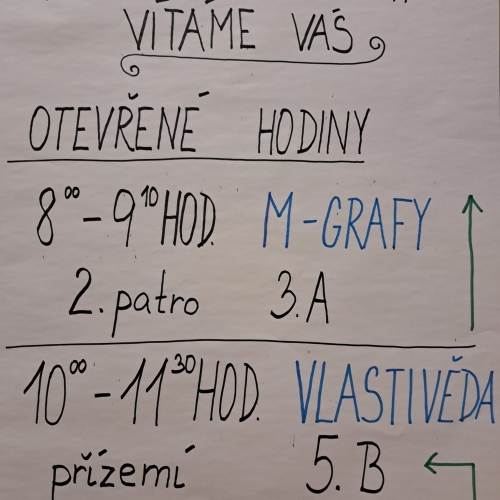 VÍTÁME VÁS
OTEVŘENÉ HODINY
8⁰⁰ - 9¹⁰ HOD. M - GRAFY
2. patro 3. A
10⁰⁰ - 11³⁰ HOD. VLASTIVĚDA
přízemí 5. B